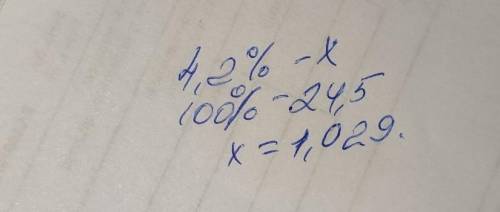 4,2% - x
100% - 24,5
x = 1,029.